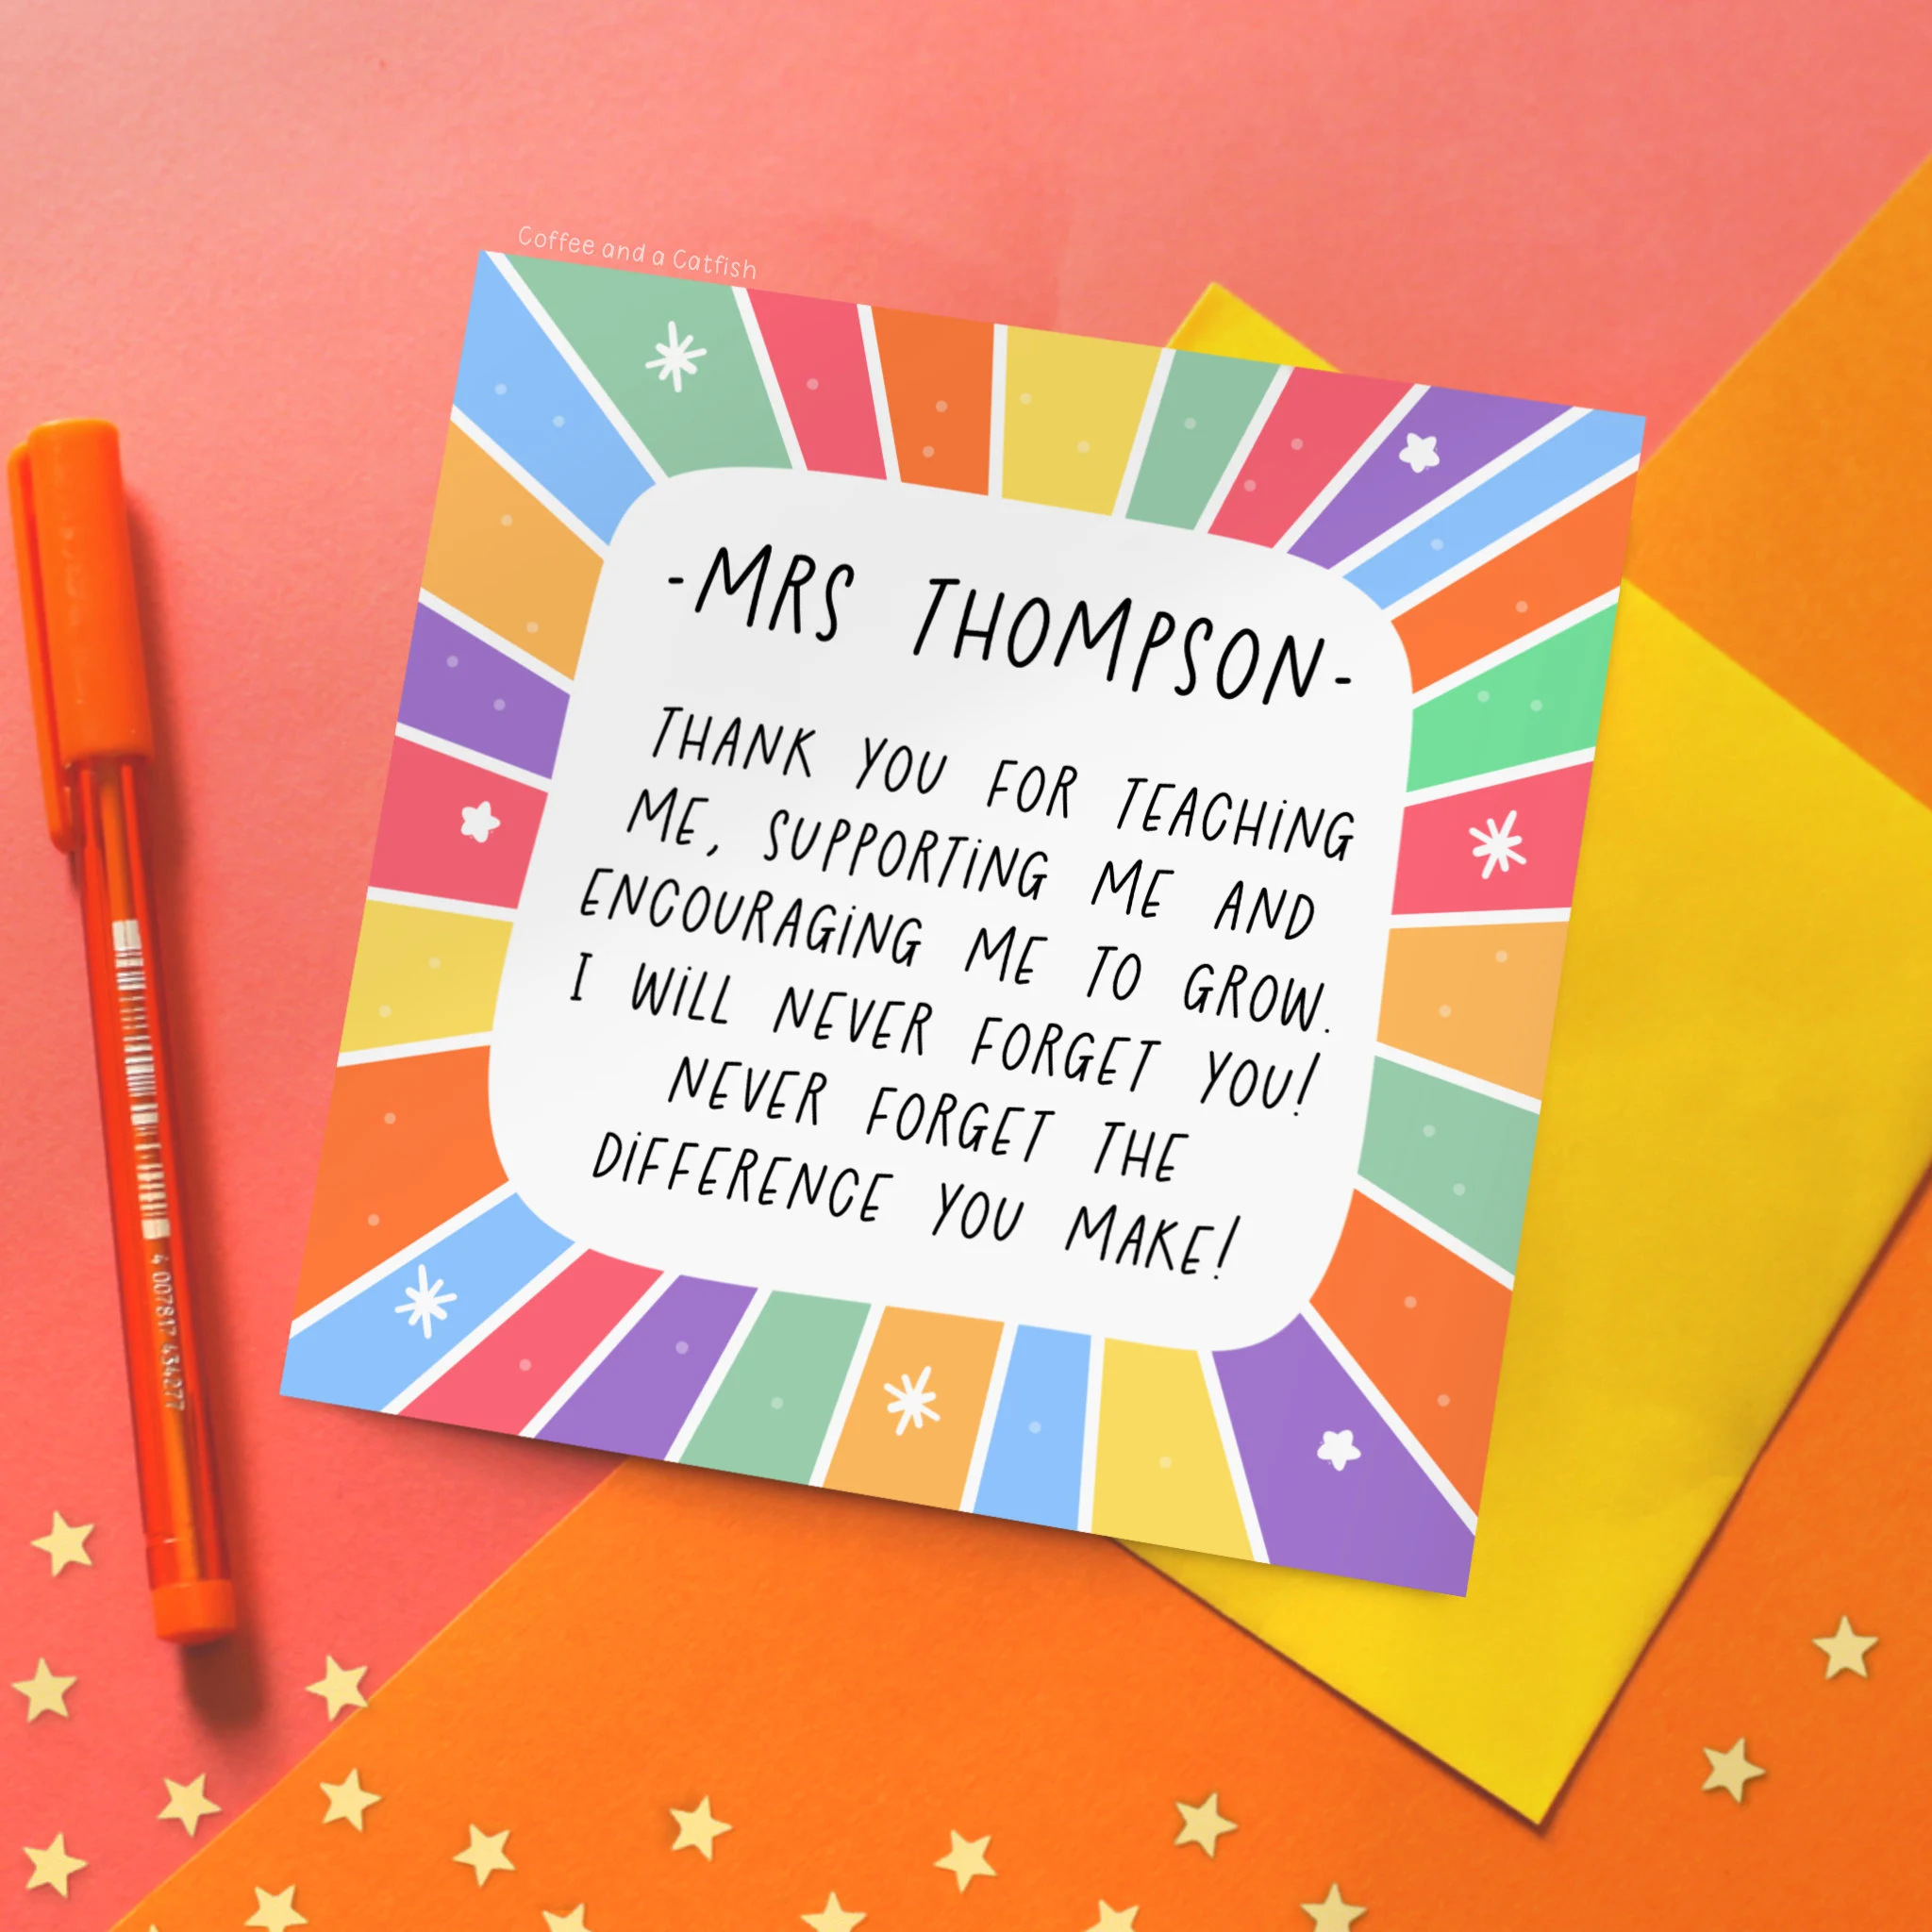 Coffee and a Catfish
-MRS THOMPSON-
THANK YOU FOR TEACHING
ME, SUPPORTING ME AND
ENCOURAGING ME TO GROW.
I WILL NEVER FORGET YOU!
NEVER FORGET THE
DIFFERENCE YOU MAKE!
4 007817 434277